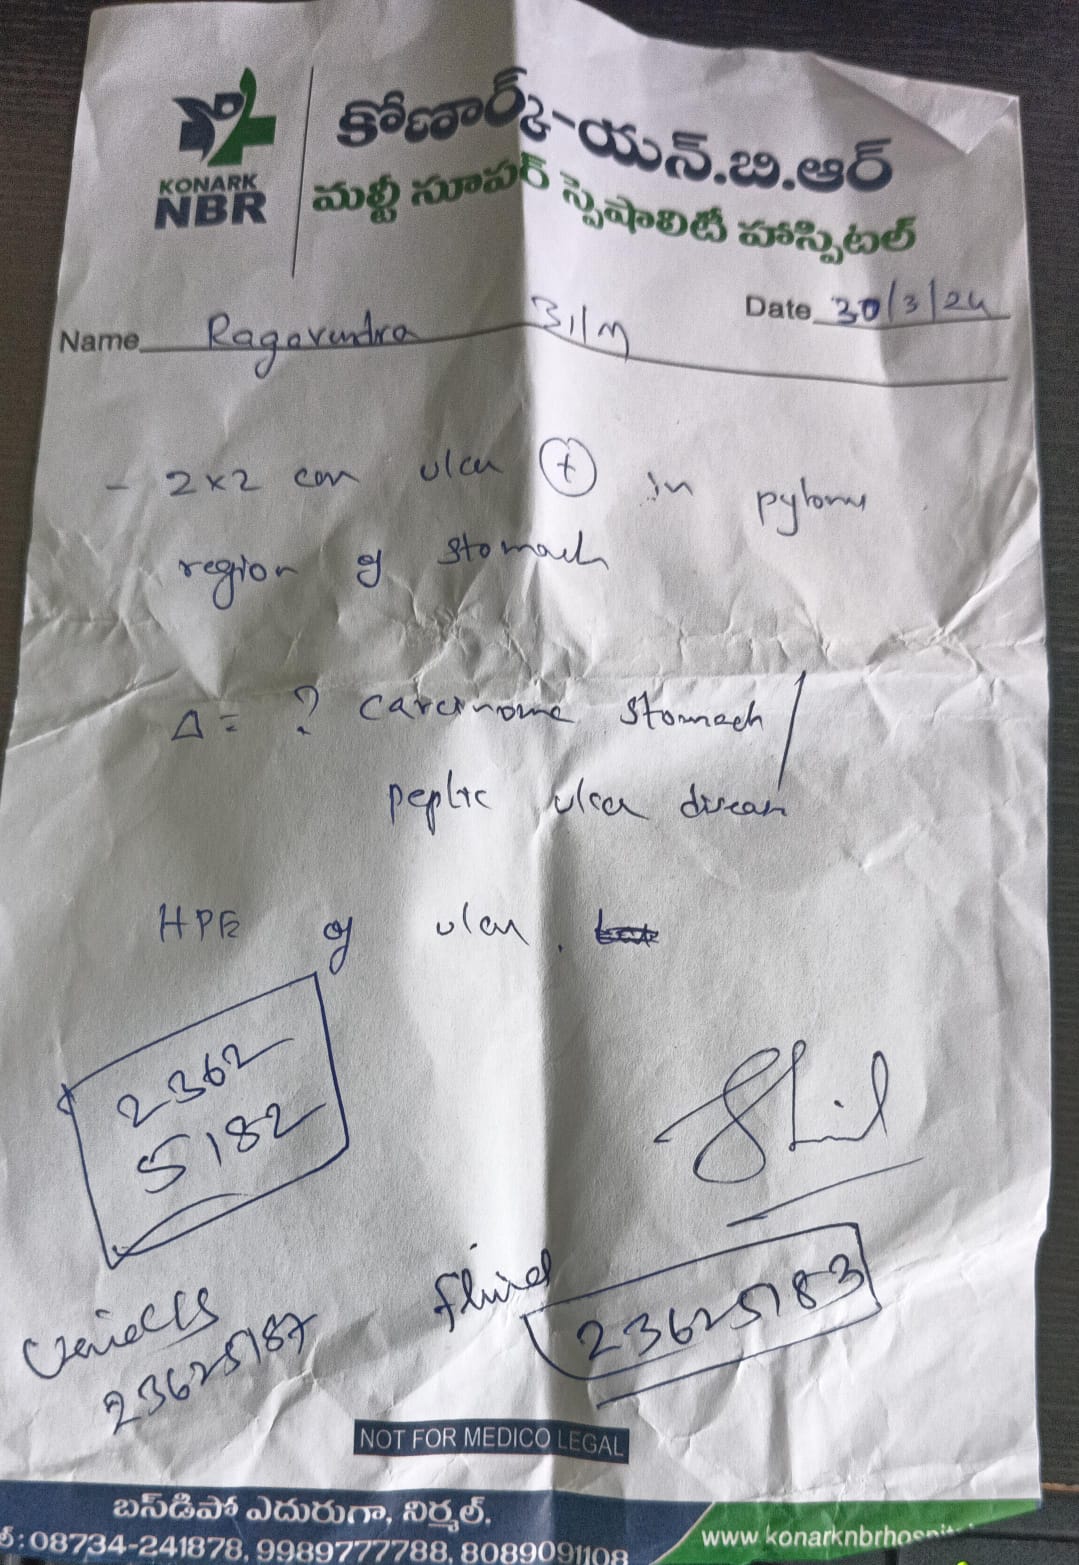 KONARK
NBR
కోణార్క్-యన్.బి.ఆర్
మల్టీ సూపర్ స్పెషాలిటీ హాస్పిటల్
Date 30/3/24
Name Ragavendra 31/M
- 2x2 cm ulcer + in pylorus
region of stomach
Δ = ? carcinoma stomach /
peptic ulcer disease
HPE of ulcer.
2362
5182
fluid
23625183
23625187
NOT FOR MEDICO LEGAL
బస్‌డిపో ఎదురుగా, నిర్మల్.
08734-241878, 9989777788, 8089091108
www.konarknbrhospit